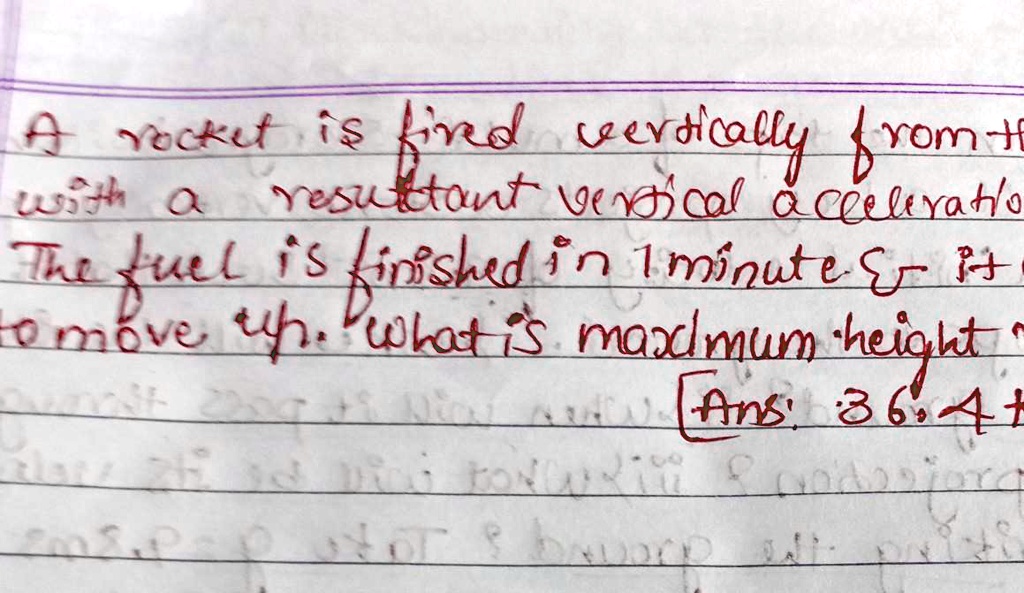 A rocket is fired vertically from th
with a resultant vertical acceleratio
The fuel is finished in 1 minute & it
to move up. What is maximum height
[Ans: 36.4